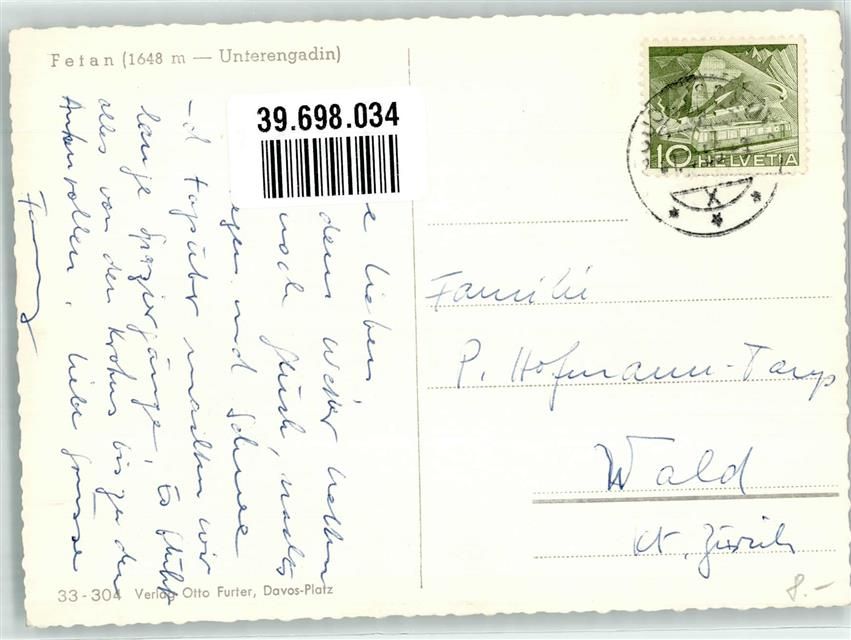 Fetan (1648 m — Unterengadin)
39.698.034
10 HELVETIA
X
e lieben
dem Wetter hatten
noch Glück, nachts
egen und Schnee
-d tagsüber machten wir
lange Spaziergänge. Es blüht
alles von den Krokus bis zu den
Ankenrollen. Liebe Grüsse
Familie
P. Hofmann-
Wald
Kt. Zürich
33 - 304 Verlag Otto Furter, Davos-Platz
8.-